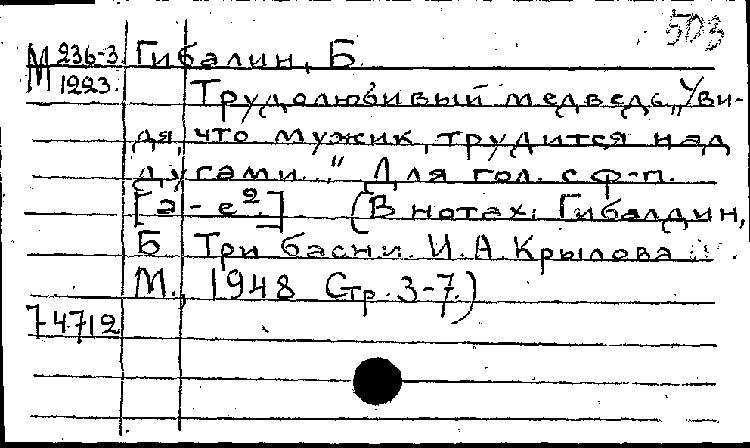 503
М 236-3 Гибалин, Б.
М 1223. Трудолюбивый медведь „Уви-
дя, что мужик, трудится над
дугами..." Для гол. с ф-п.
[а - е².] (В нотах: Гибалдин,
Б Три басни И.А. Крылова
М., 1948 Стр. 3-7.)
7-4712